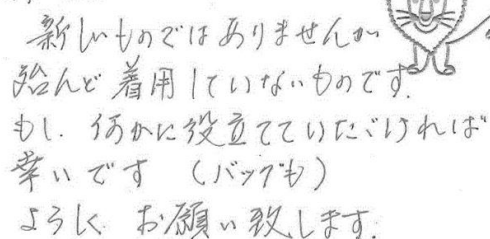 新しいものではありませんが
殆んど着用していないものです.
もし、何かに役立てていただければ
幸いです (バッグも)
よろしく お願い致します.